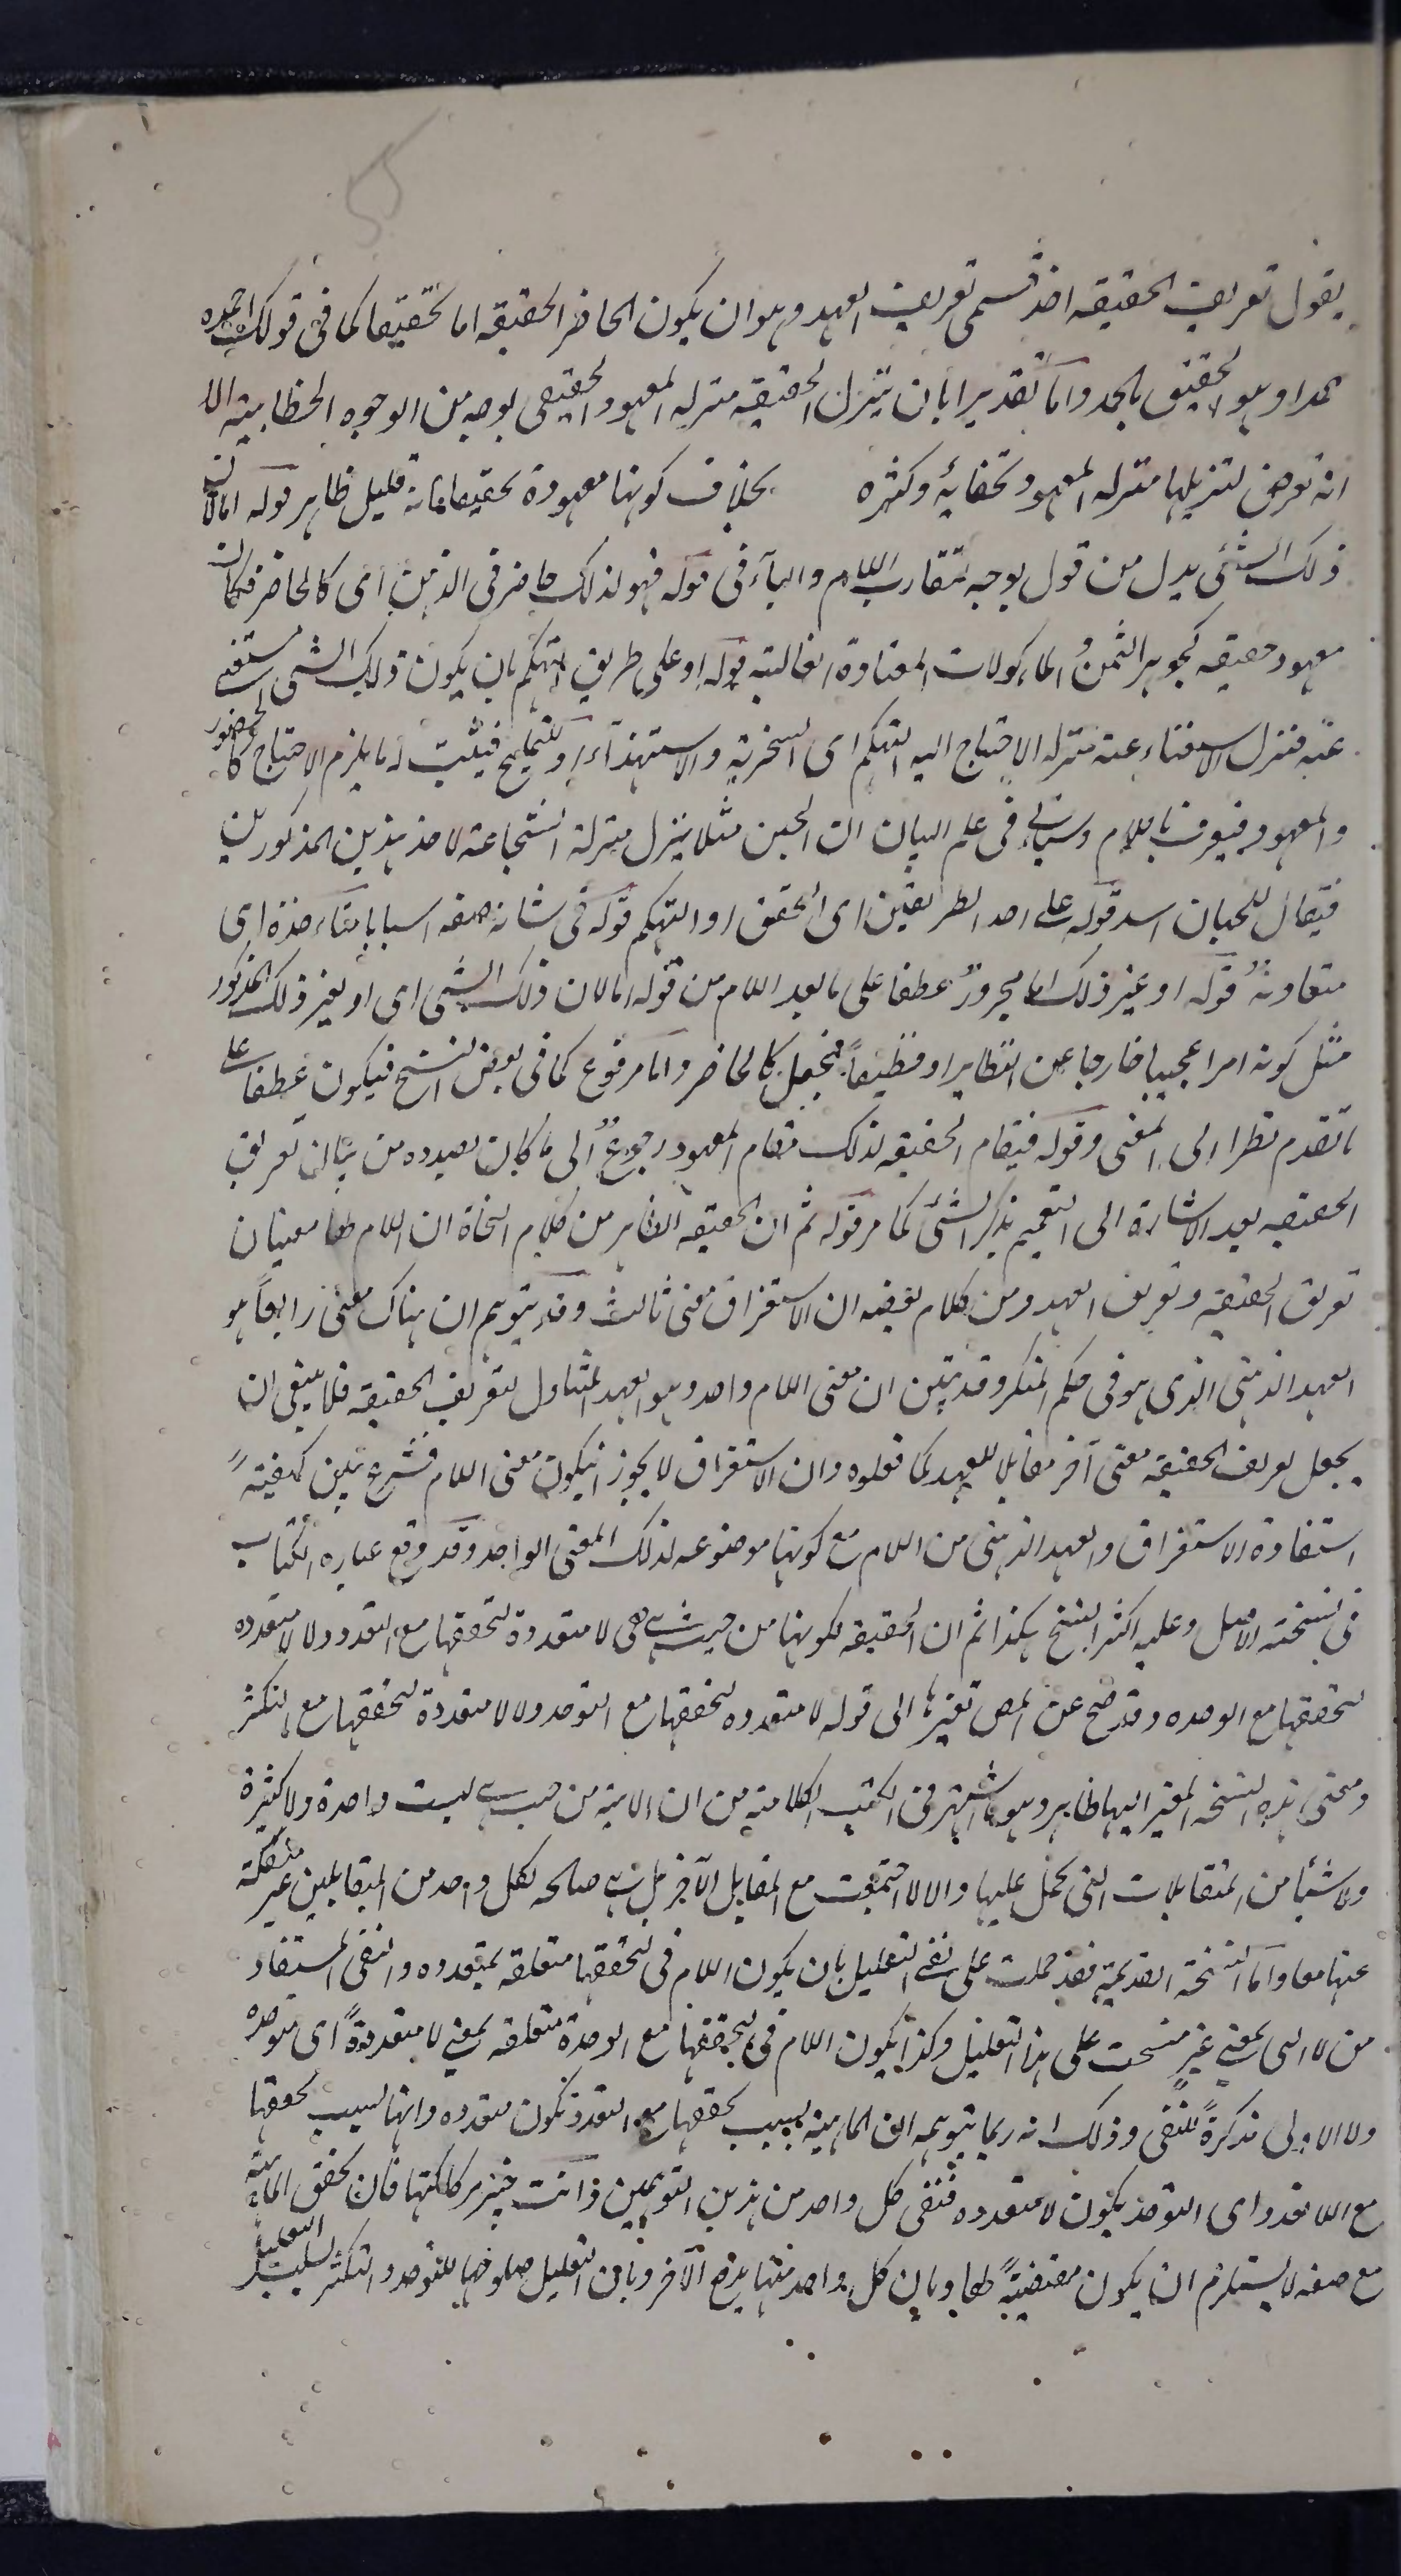 يقول تعريف الحقيقه احد قسمى تعريف العهد وهو ان يكون الحاضر الحقيقه اما تحقيقا كما فى قولك احمده
حمدا وهو الحقيق بالحمد واما تقديرا بان ينزل الحقيقه منزله المعهود الحقيقى بوجه من الوجوه الخطابية الا
انه تعرض لتنزيلها منزله المعهود لخفائه وكثره بخلاف كونها معهودة تحقيقا فانه قليل ظاهر قوله اما لان
ذلك الشئ بدل من قول بوجه لتقارب اللام والباء فى قوله فهو لذلك حاضر فى الذهن اى كالحاضر فكان
معهود حقيقه كجوهر الثمن و الماءكولات المعتادة الغالبة قوله او على طريق التهكم بان يكون ذلك الشئ مستغنى
عنه فنزل الاستغناء عنه منزله الاحتياج اليه التهكم اى السخرية والاستهذاء او للتمليح فيثبت له ما يلزم الاحتياج كالحضور
والمعهود فيعرف باللام وسياتى فى علم البيان ان الجبن مثلا ينزل منزلة الشجاعة لاحد هذين المذكورين
فيقال للجبان اسد قوله على احد الطريقين اى التحقق او التهكم قوله فى شانه صفه اسبابا متاءخذة اى
متعاونة قوله او غير ذلك اما مجرور عطفا على ما بعد اللام من قوله اما لان ذلك الشئ اى او لغير ذلك المذكور
مثل كونه امرا عجيبا خارجا عن النظاير او فظيعاً فيجعل كالحاضر واما مرفوع كما فى بعض النسخ فيكون عطفا على
ما تقدم نظرا الى المعنى وقوله فيقام الحقيقه لذلك مقام المعهود رجوع الى ما كان بصدده من بيان تعريف
الحقيقه بعد الاشارة الى التعميم بذكر الشئ كما مر قوله ثم ان الحقيقه الظاهر من كلام النحاة ان اللام لها معنيان
تعريف الحقيقه وتعريف العهد ومن كلام بعضه ان الاستغراق معنى ثالث وقد يتوهم ان هناك معنى رابعاً هو
العهد الذهنى الذى هو فى حكم المنكر وقد تبين ان معنى اللام واحد وهو العهد المتناول لتعريف الحقيقه فلا ينبغى ان
يجعل تعريف الحقيقه معنى آخر مقابلا للعهد كما فعلوه وان الاستغراق لا يجوز ان يكون معنى اللام فشرع يبين كيفية
استفادة الاستغراق والعهد الذهنى من اللام مع كونها موضوعه لذلك المعنى الواحد وقد وقع عباره الكتاب
فى نسخته الاصل وعليه اكثر النسخ هكذا ثم ان الحقيقه لكونها من حيث هى هى لا متعددة لتحققها مع التعدد ولا لا متعدده
لتحققها مع الوحده وقد صح عن المص تغيرها الى قوله لا متعدده لتحققها مع التوحد ولا لا متعددة لتحققها مع التكثر
ومعنى هذه النسخه المغير اليها ظاهر وهو ما اشتهر فى الكتب الكلامية من ان الماهية من حيث هى ليست واحدة ولا كثيرة
ولا شيئا من المتقابلات التى تحمل عليها والا لا اجتمعت مع المقابل الآخر بل هى صالحه لكل واحد من المتقابلين غير منفكة
عنها معا واما النسخة القديمة فقد حملت على نفى التعليل بان يكون اللام فى لتحققها متعلقه بمتعدده والنفى المستفاد
من لا التى بمعنى غير منسحب على هذا التعليل وكذا يكون اللام فى لتحققها مع الوحدة متعلقه بمعنى لا متعددةً اى متوحده
ولا الاولى مذكرةً للنفى وذلك انه ربما يتوهم ان الماهية بسبب تحققها مع التعدد تكون متعدده وانها لسبب تحققها
مع اللا تعدد اى التوحد يكون لا متعدده فنفى كل واحد من هذين التوهمين وانت خبير بركاكتها فان تحقق الماهية
مع صفه لا يستلزم ان يكون مقتضيةً لها وبان كل واحد منهما يدفع الآخر وبان التعليل صلوحها للتوحد والتكثر